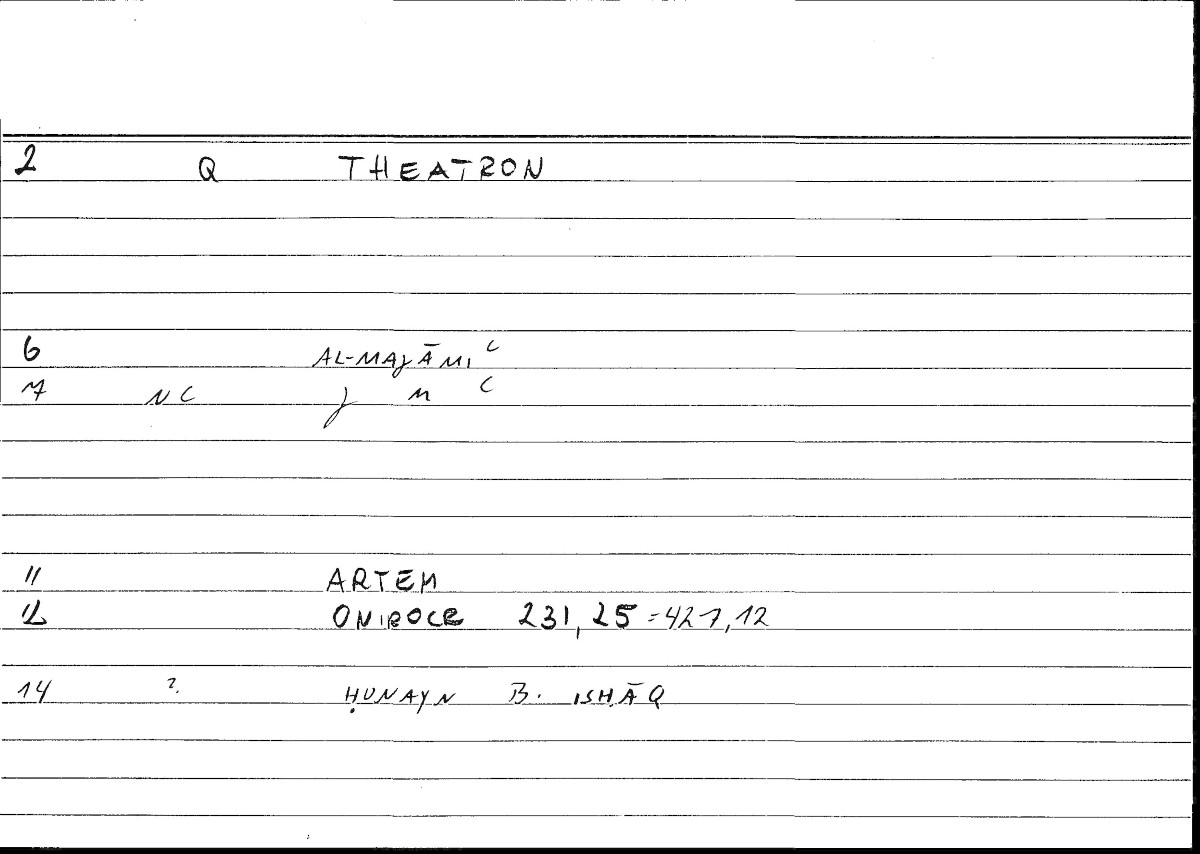 2 Q THEATRON
6 AL-MAJĀMIʿ
7 NC j m ʿ
11 ARTEM
12 ONIROCR 231,25 = 427,12
14 ?. ḤUNAYN B. ISḤĀQ